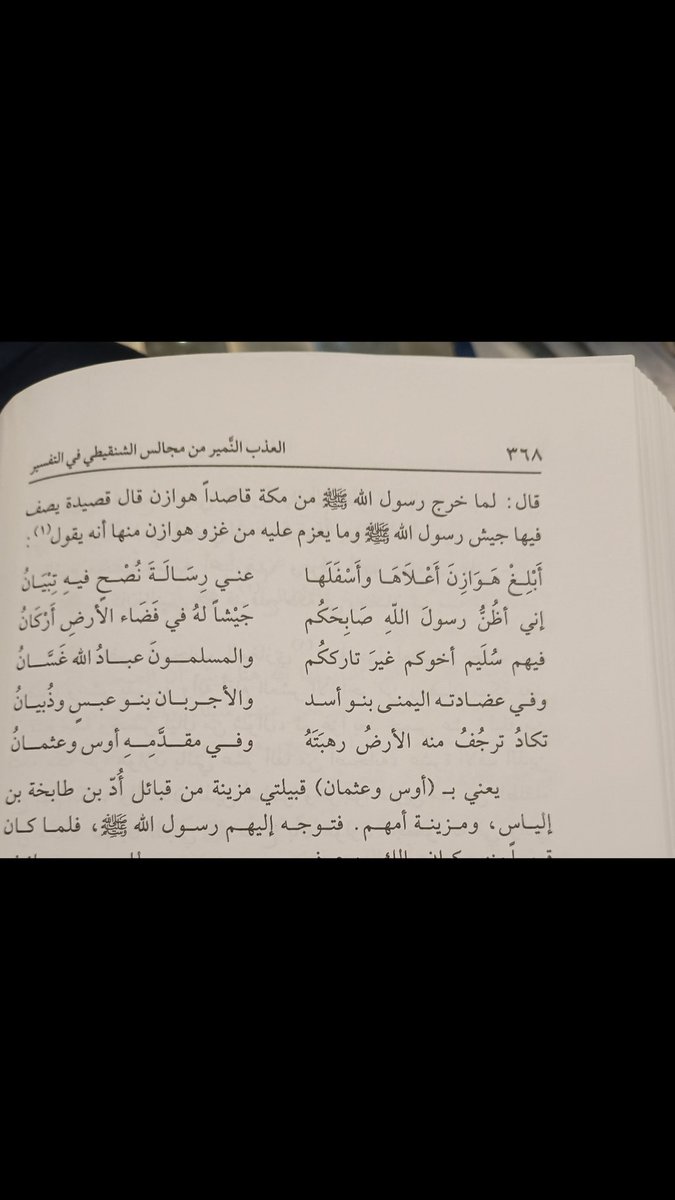 ٣٦٨ العذب النَّمير من مجالس الشنقيطي في التفسير
قال: لما خرج رسول الله ﷺ من مكة قاصداً هوازن قال قصيدة يصف
فيها جيش رسول الله ﷺ وما يعزم عليه من غزو هوازن منها أنه يقول(١):
أَبْلِغْ هَوَازِنَ أَعْلَاهَا وأَسْفَلَهَا عني رِسَالَةَ نُصْحٍ فيهِ تِبْيَانُ
إني أظُنُّ رسولَ اللّهِ صَابِحَكُم جَيْشاً لهُ في فَضَاء الأرضِ أَرْكَانُ
فيهم سُلَيم أخوكم غيرَ تارككُم والمسلمونَ عبادُ الله غَسَّانُ
وفي عضادته اليمنى بنو أسد والأجربان بنو عبسٍ وذُبيانُ
تكادُ ترجُفُ منه الأرضُ رهبَتَهُ وفي مقدَّمِهِ أوس وعثمانُ
يعني بـ (أوس وعثمان) قبيلتي مزينة من قبائل أُدّ بن طابخة بن
إلياس، ومزينة أمهم. فتوجه إليهم رسول الله ﷺ، فلما كان